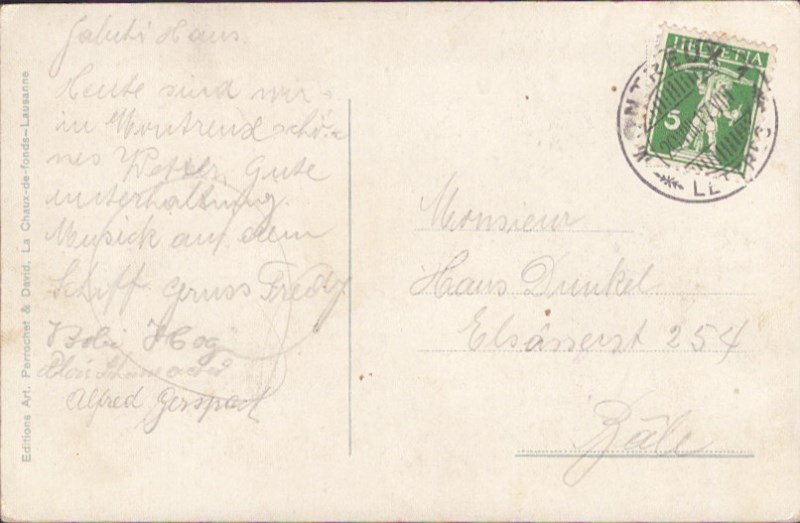 Saluti Hans.
Heute sind wir
in Montreux schö-
nes Wetter. Gute
unterhaltung.
Musick auf dem
Schiff Gruss Fredy
Bobi Hog
Alfred Gerspach
Monsieur
Hans Dunkel
Elsässerst 254
Bâle
HELVETIA
5
MONTREUX 1
LETTRES
Editions Art. Perrochet & David, La Chaux-de-fonds-Lausanne